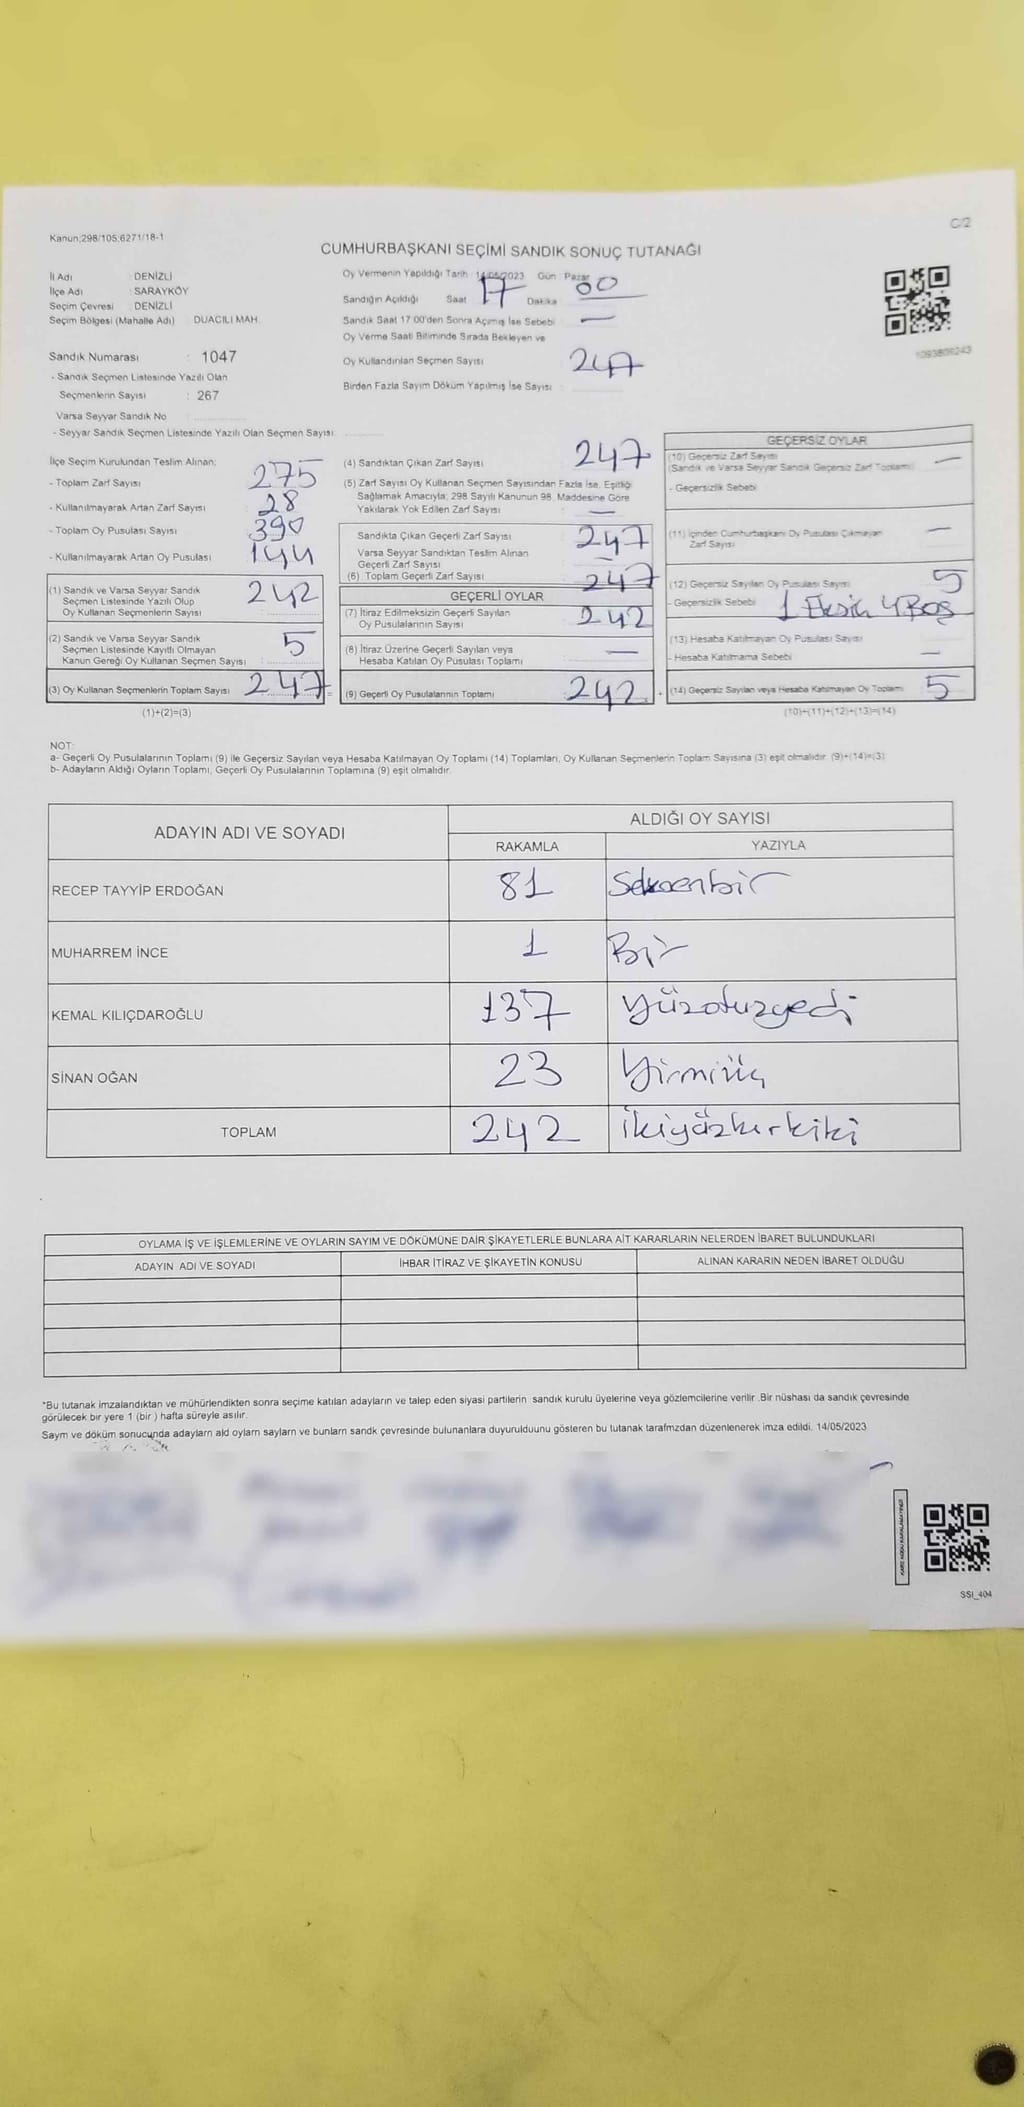 Kanun;298/105;6271/18-1
C/2
CUMHURBAŞKANI SEÇİMİ SANDIK SONUÇ TUTANAĞI
İl Adı : DENİZLİ
İlçe Adı : SARAYKÖY
Seçim Çevresi : DENİZLİ
Seçim Bölgesi (Mahalle Adı) DUACILI MAH.
Sandık Numarası : 1047
- Sandık Seçmen Listesinde Yazılı Olan
Seçmenlerin Sayısı : 267
Varsa Seyyar Sandık No
- Seyyar Sandık Seçmen Listesinde Yazılı Olan Seçmen Sayısı
Oy Vermenin Yapıldığı Tarih : 14/05/2023 Gün Pazar
Sandığın Açıldığı Saat 17 Dakika 00
Sandık Saat 17:00'den Sonra Açılmış İse Sebebi —
Oy Verme Saati Bitiminde Sırada Bekleyen ve
Oy Kullandırılan Seçmen Sayısı 247
Birden Fazla Sayım Döküm Yapılmış İse Sayısı
1093809243
İlçe Seçim Kurulundan Teslim Alınan;
- Toplam Zarf Sayısı 275
- Kullanılmayarak Artan Zarf Sayısı 28
- Toplam Oy Pusulası Sayısı 390
- Kullanılmayarak Artan Oy Pusulası 144
(1) Sandık ve Varsa Seyyar Sandık
Seçmen Listesinde Yazılı Olup
Oy Kullanan Seçmenlerin Sayısı 242
(2) Sandık ve Varsa Seyyar Sandık
Seçmen Listesinde Kayıtlı Olmayan
Kanun Gereği Oy Kullanan Seçmen Sayısı 5
(3) Oy Kullanan Seçmenlerin Toplam Sayısı 247
(1)+(2)=(3)
(4) Sandıktan Çıkan Zarf Sayısı 247
(5) Zarf Sayısı Oy Kullanan Seçmen Sayısından Fazla İse, Eşitliği
Sağlamak Amacıyla; 298 Sayılı Kanunun 98. Maddesine Göre
Yakılarak Yok Edilen Zarf Sayısı —
Sandıkta Çıkan Geçerli Zarf Sayısı 247
Varsa Seyyar Sandıktan Teslim Alınan
Geçerli Zarf Sayısı —
(6) Toplam Geçerli Zarf Sayısı 247
GEÇERLİ OYLAR
(7) İtiraz Edilmeksizin Geçerli Sayılan
Oy Pusulalarının Sayısı 242
(8) İtiraz Üzerine Geçerli Sayılan veya
Hesaba Katılan Oy Pusulası Toplamı —
(9) Geçerli Oy Pusulalarının Toplamı 242
GEÇERSİZ OYLAR
(10) Geçersiz Zarf Sayısı
(Sandık ve Varsa Seyyar Sandık Geçersiz Zarf Toplamı) —
- Geçersizlik Sebebi
(11) İçinden Cumhurbaşkanı Oy Pusulası Çıkmayan
Zarf Sayısı —
(12) Geçersiz Sayılan Oy Pusulası Sayısı 5
- Geçersizlik Sebebi 1 Eksik 4 Boş
(13) Hesaba Katılmayan Oy Pusulası Sayısı
- Hesaba Katılmama Sebebi —
(14) Geçersiz Sayılan veya Hesaba Katılmayan Oy Toplamı 5
(10)+(11)+(12)+(13)=(14)
NOT:
a- Geçerli Oy Pusulalarının Toplamı (9) ile Geçersiz Sayılan veya Hesaba Katılmayan Oy Toplamı (14) Toplamları, Oy Kullanan Seçmenlerin Toplam Sayısına (3) eşit olmalıdır. (9)+(14)=(3)
b- Adayların Aldığı Oyların Toplamı, Geçerli Oy Pusulalarının Toplamına (9) eşit olmalıdır.
ADAYIN ADI VE SOYADI
ALDIĞI OY SAYISI
RAKAMLA YAZIYLA
RECEP TAYYİP ERDOĞAN 81 Seksenbir
MUHARREM İNCE 1 Bir
KEMAL KILIÇDAROĞLU 137 Yüzotuzyedi
SİNAN OĞAN 23 Yirmiüç
TOPLAM 242 ikiyüzkırkiki
OYLAMA İŞ VE İŞLEMLERİNE VE OYLARIN SAYIM VE DÖKÜMÜNE DAİR ŞİKAYETLERLE BUNLARA AİT KARARLARIN NELERDEN İBARET BULUNDUKLARI
ADAYIN ADI VE SOYADI İHBAR İTİRAZ VE ŞİKAYETİN KONUSU ALINAN KARARIN NEDEN İBARET OLDUĞU
*Bu tutanak imzalandıktan ve mühürlendikten sonra seçime katılan adayların ve talep eden siyasi partilerin sandık kurulu üyelerine veya gözlemcilerine verilir .Bir nüshası da sandık çevresinde
görülecek bir yere 1 (bir ) hafta süreyle asılır.
Saym ve döküm sonucunda adaylarn ald oylarn saylarn ve bunlarn sandk çevresinde bulunanlara duyurulduunu gösteren bu tutanak tarafmzdan düzenlenerek imza edildi. 14/05/2023
KARE KODU KARALAMAYINIZ!
SSI_404